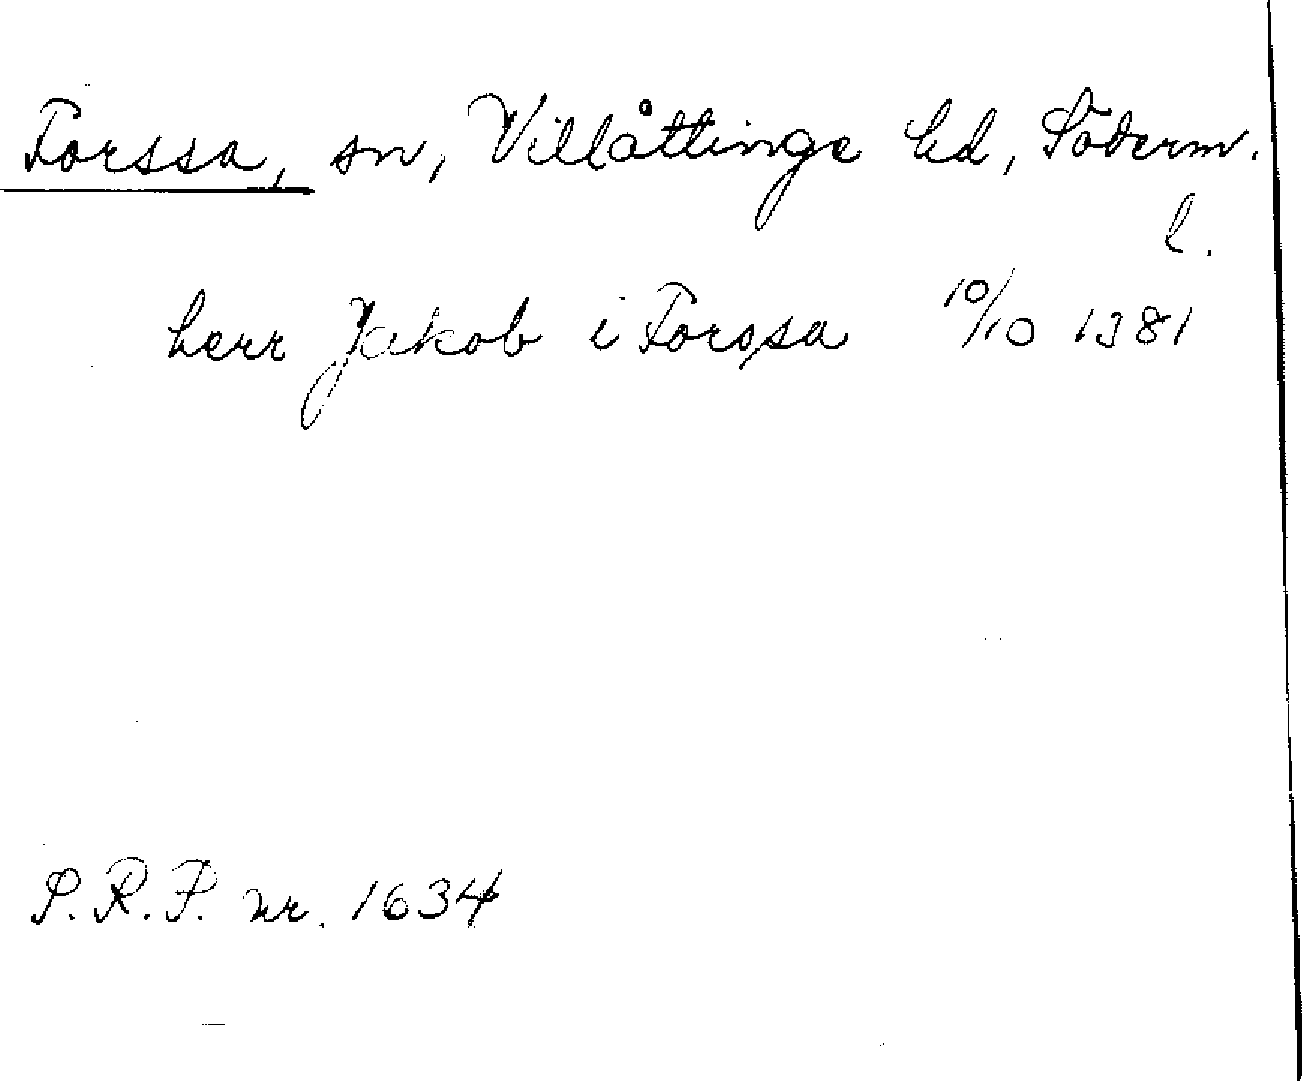 Forssa, sn, Villåttinge hd, Söderm.
l.
herr Jakob i Forssa 10/10 1381
S.R.P. nr. 1634